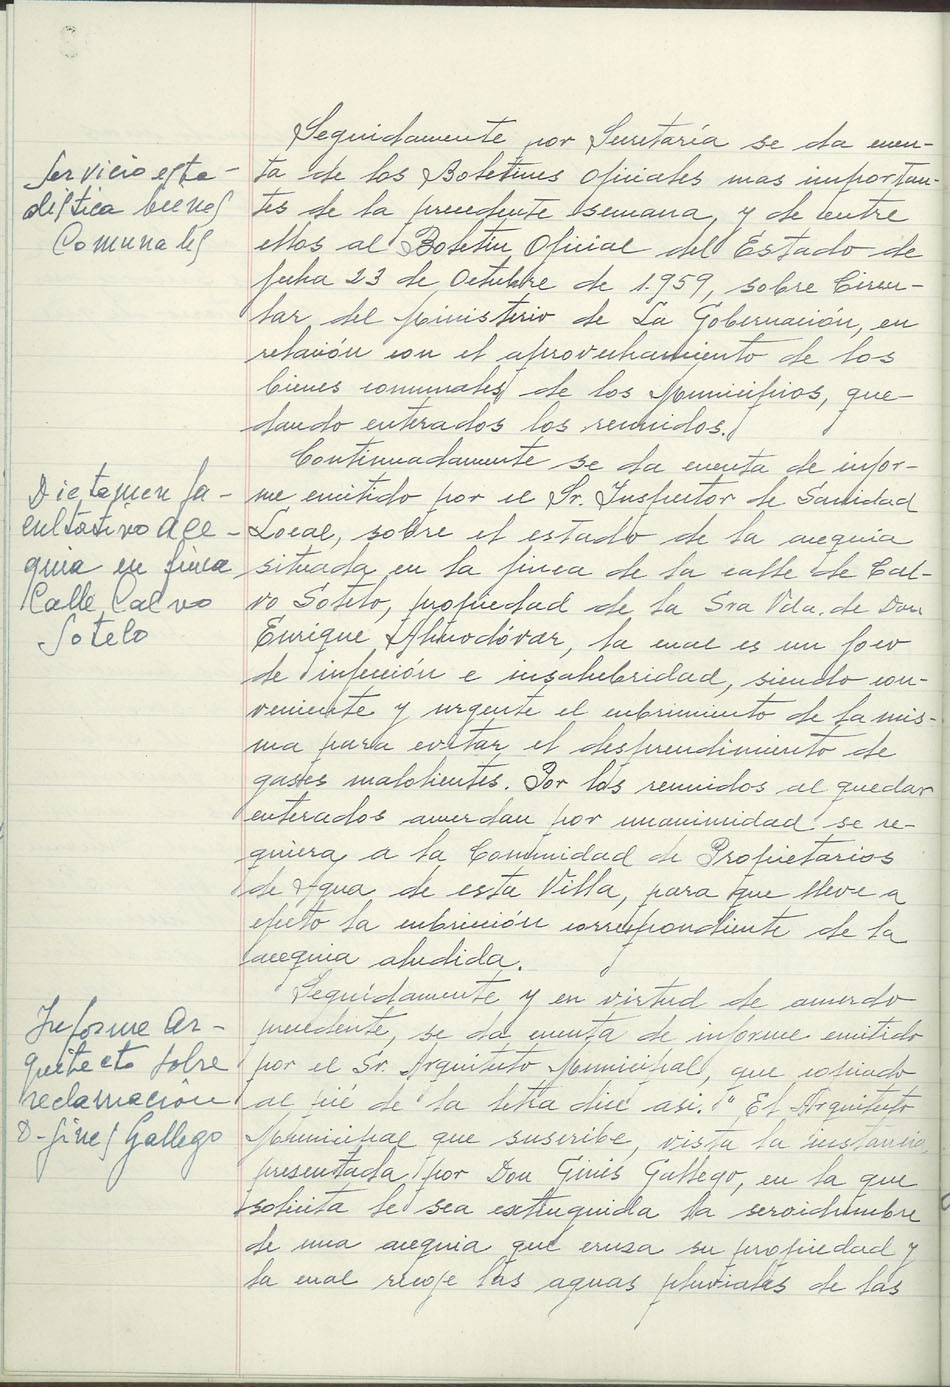 Servicio esta-
distica bienes
Comunales
Seguidamente por Secretaría se da cuen-
ta de los Boletines Oficiales mas importan-
tes de la precedente semana, y de entre
ellos al Boletin Oficial del Estado de
fecha 23 de Octubre de 1.959, sobre Circu-
lar del Ministerio de La Gobernación, en
relación con el aprovechamiento de los
bienes comunales de los Municipios, que-
dando enterados los reunidos.
Dictamen fa-
cultativo ace-
quia en finca
Calle Calvo
Sotelo
Continuadamente se da cuenta de infor-
me emitido por el Sr. Inspector de Sanidad
Local, sobre el estado de la acequia
situada en la finca de la calle de Cal-
vo Sotelo, propiedad de la Sra Vda. de Don
Enrique Almodóvar, la cual es un foco
de infección e insalubridad, siendo con-
veniente y urgente el cubrimiento de la mis-
ma para evitar el desprendimiento de
gases malolientes. Por los reunidos al quedar
enterados acuerdan por unanimidad se re-
quiera a la Comunidad de Propietarios
de Agua de esta Villa, para que lleve a
efecto la cubrición correspondiente de la
acequia aludida.
Informe Ar-
quitecto sobre
reclamación
D- Gines Gallego
Seguidamente y en virtud de acuerdo
precedente, se da cuenta de informe emitido
por el Sr. Arquitecto Municipal, que copiado
al pié de la letra dice asi. "El Arquitecto
Municipal que suscribe, vista la instancia
presentada por Don Ginés Gallego, en la que
solicita le sea extinguida la servidumbre
de una acequia que cruza su propiedad y
la cual recoge las aguas pluviales de las